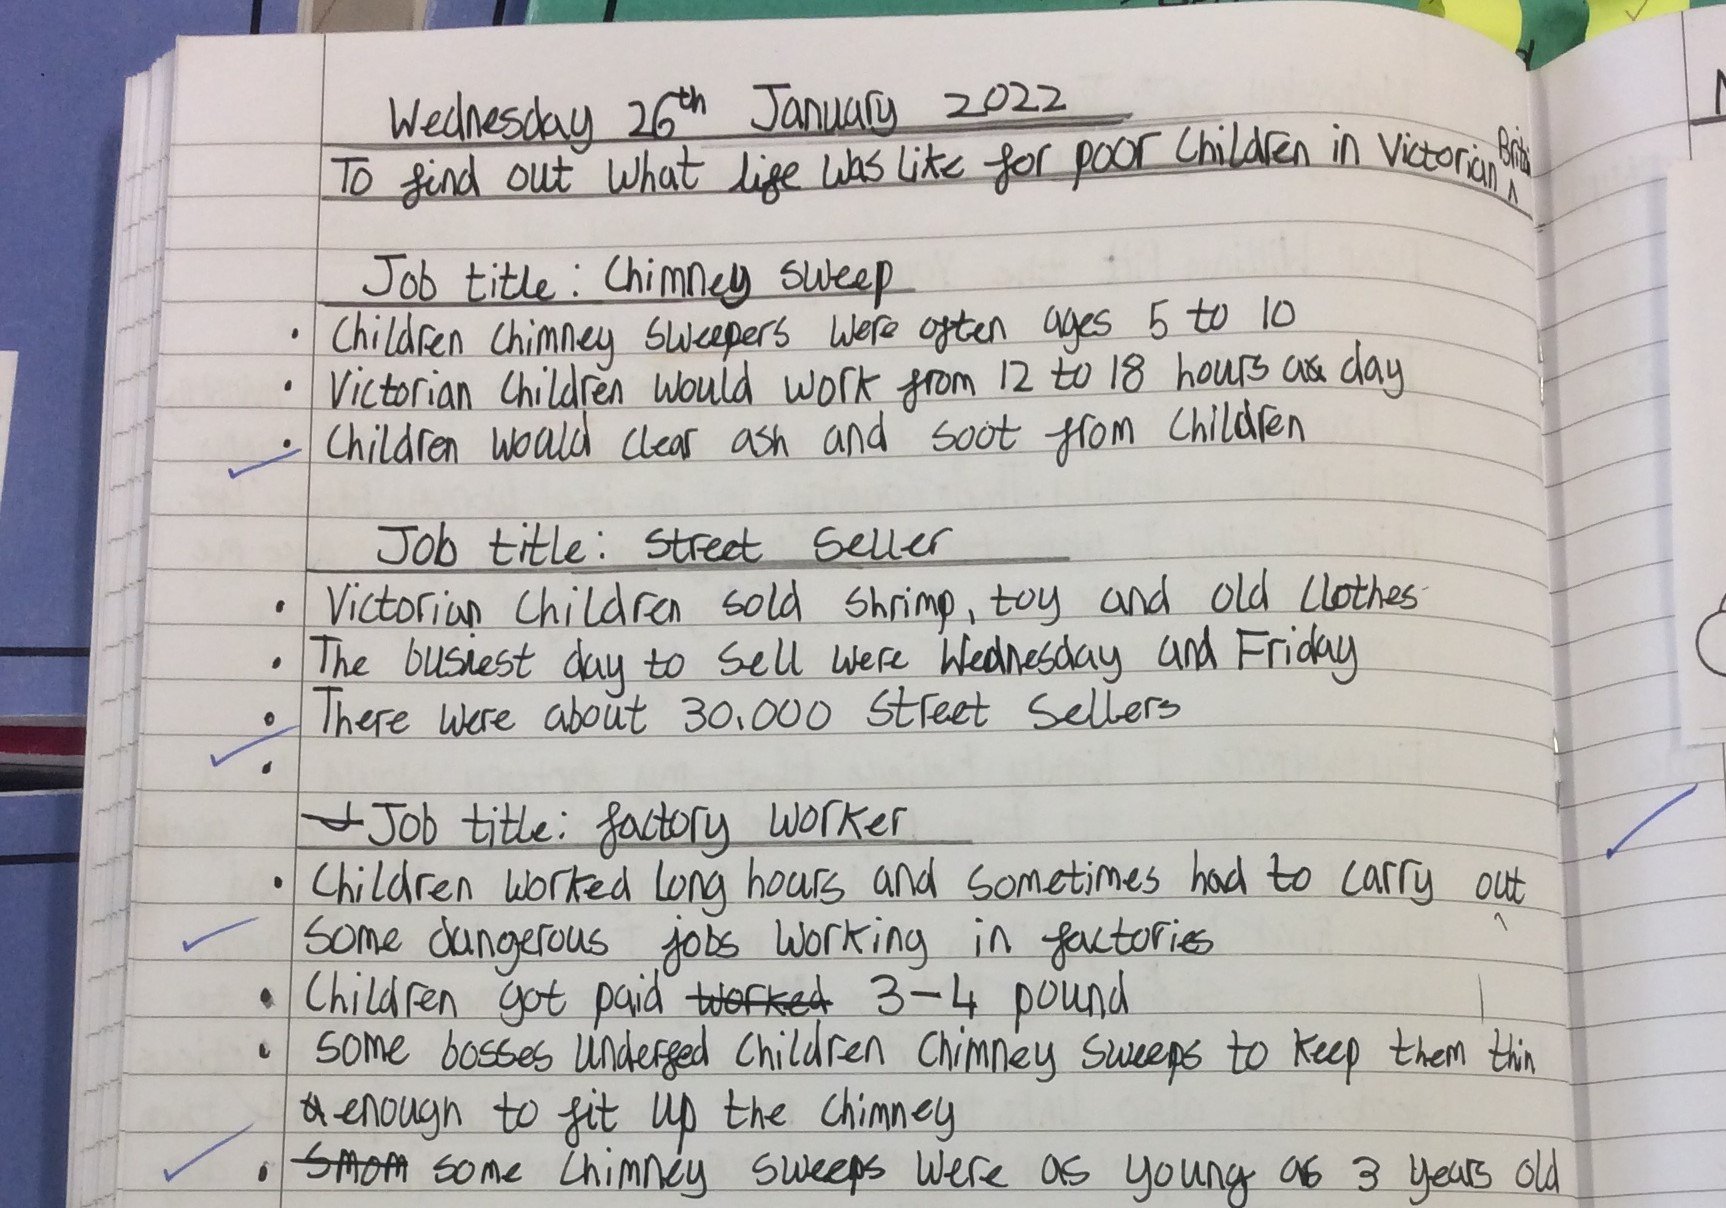 Wednesday 26th January 2022
To find out what life was like for poor children in Victorian
Job title: Chimney sweep
• Children chimney sweepers were often ages 5 to 10
• Victorian children would work from 12 to 18 hours a day
• Children would clear ash and soot from children
Job title: Street Seller
• Victorian children sold shrimp, toy and old clothes
• The busiest day to sell were Wednesday and Friday
• There were about 30.000 street sellers
•
Job title: factory worker
• Children worked long hours and sometimes had to carry out
some dangerous jobs working in factories
• Children got paid worked 3-4 pound
• some bosses underfed children chimney sweeps to keep them thin
enough to fit up the chimney
• some chimney sweeps were as young as 3 years old